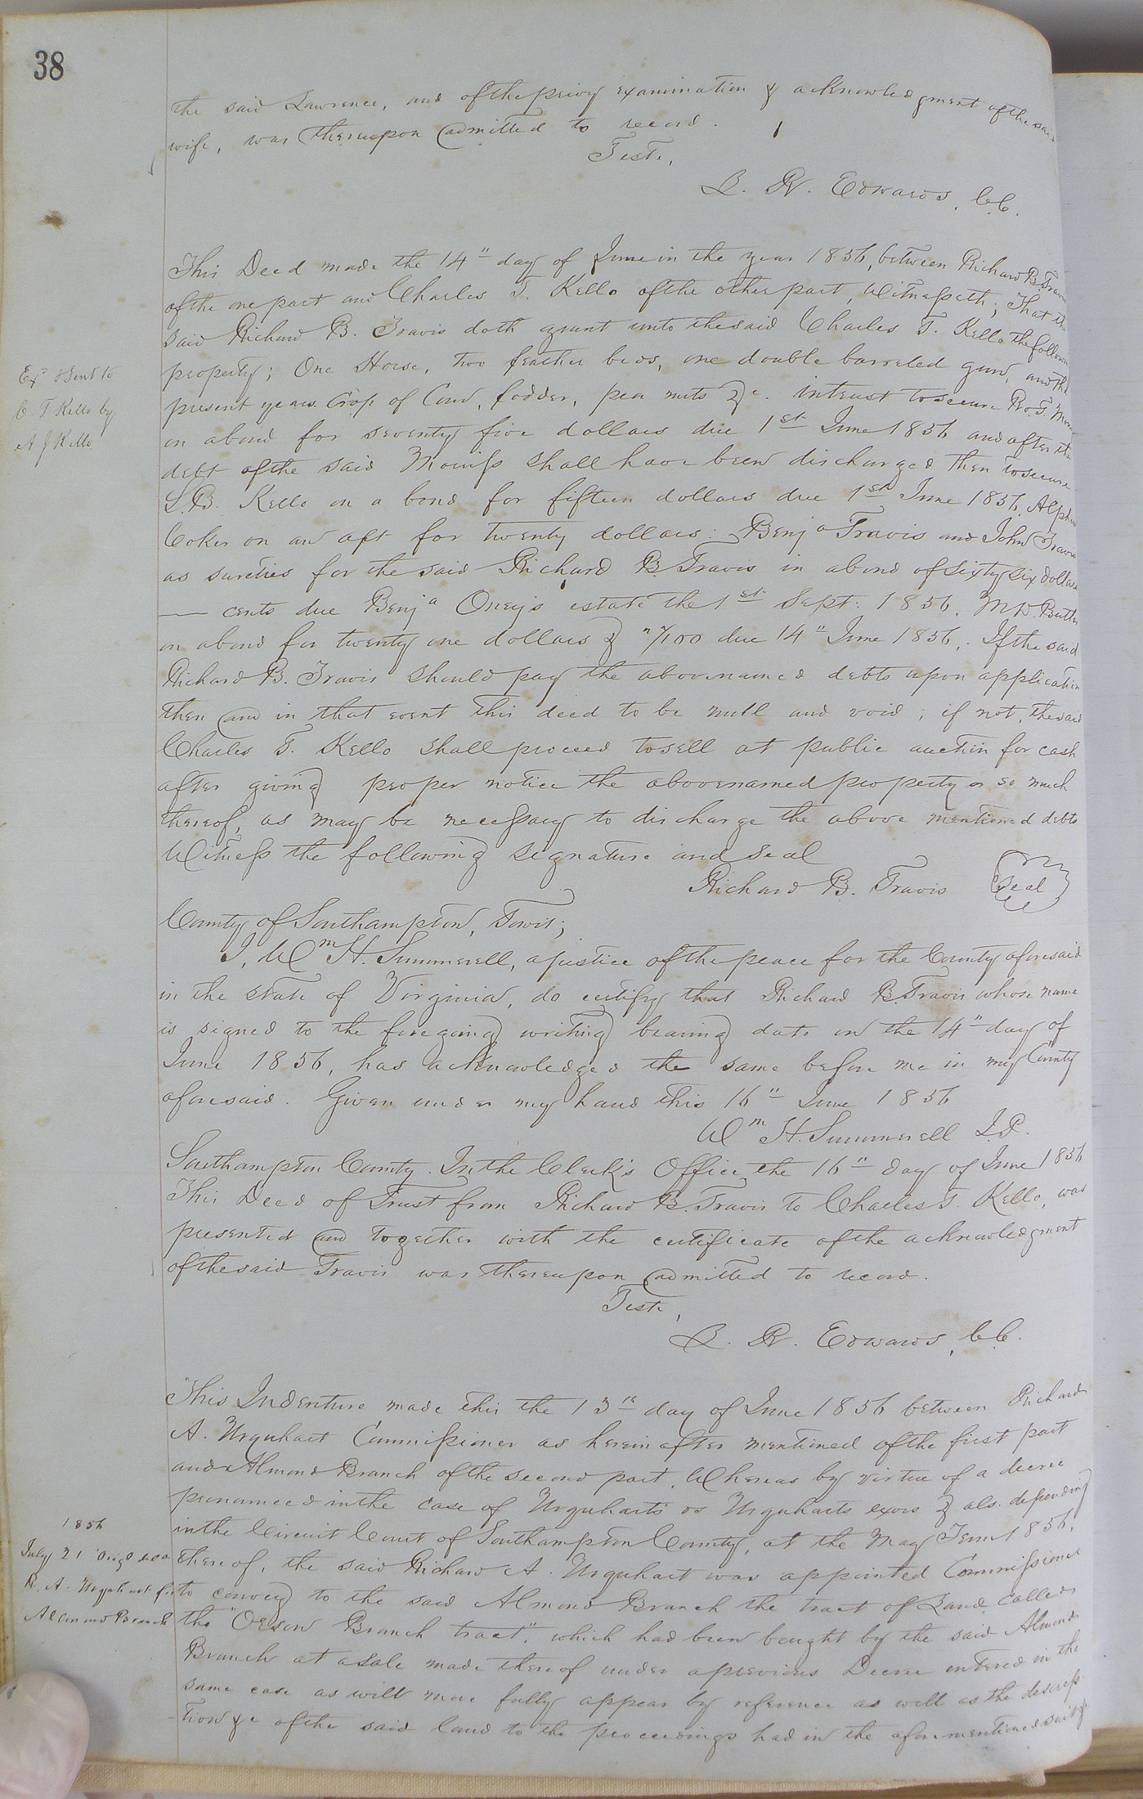 38
the said Lawrence, and of the privy examination & acknowledgment of the said
wife, was thereupon admitted to record.
Teste,
L. R. Edwards, C.C.
This Deed made the 14" day of June in the year 1856, between Richard B. Travis
of the one part and Charles T. Kello of the other part, Witnesseth; That the
said Richard B. Travis doth grant unto the said Charles T. Kello the following
property; One Horse, two feather beds, one double barreled gun, and the
present years Crop of Corn, fodder, pea nuts &c. in trust to secure
on a bond for seventy five dollars due 1st June 1856 and after the
debt of the said shall have been discharged then to secure
S. B. Kello on a bond for fifteen dollars due 1st June 1856.
Coker on an a/ct for twenty dollars: Benja Travis and John Travis
as sureties for the said Richard B. Travis in a bond of sixty six dollars
— cents due Benja Oney's estate the 1st Sept: 1856.
on a bond for twenty one dollars & /100 due 14" June 1856,. If the said
Richard B. Travis should pay the above named debts upon application
then and in that event this deed to be null and void; if not, the said
Charles T. Kello shall proceed to sell at public auction for cash
after giving proper notice the above named property or so much
thereof, as may be necessary to discharge the above mentioned debts
Witness the following signature and seal
Richard B. Travis Seal
County of Southampton, Towit;
I, Wm H. Summerell, a justice of the peace for the County aforesaid
in the state of Virginia, do certify that Richard B. Travis whose name
is signed to the foregoing writing bearing date on the 14" day of
June 1856, has acknowledged the same before me in my County
aforesaid. Given under my hand this 16" June 1856
Wm H. Summerell J.P.
Southampton County. In the Clerk's Office the 16" day of June 1856
This Deed of Trust from Richard B. Travis to Charles T. Kello, was
presented and together with the certificate of the acknowledgment
of the said Travis was thereupon admitted to record.
Teste,
L. R. Edwards, C.C.
This Indenture made this the 13th day of June 1856 between Richard
A. Urquhart Commissioner as herein after mentioned of the first part
and Almond Branch of the second part. Whereas by virtue of a decree
pronounced in the case of Urquharts vs Urquharts exors & als. depending
in the Circuit Court of Southampton County, at the May Term 1856,
thereof, the said Richard A. Urquhart was appointed Commissioner
to convey to the said Almond Branch the tract of Land called
the "Orson Branch tract", which had been bought by the said Almond
Branch at a sale made thereof under a previous Decree entered in the
same case as will more fully appear by reference as well as the descrip
tion &c of the said land to the proceedings had in the aforementioned suit &
Exd & Sent to
C. T. Kello by
A J Kello
1856
July 21 Origl
R. A. Urquhart
Almond Branch